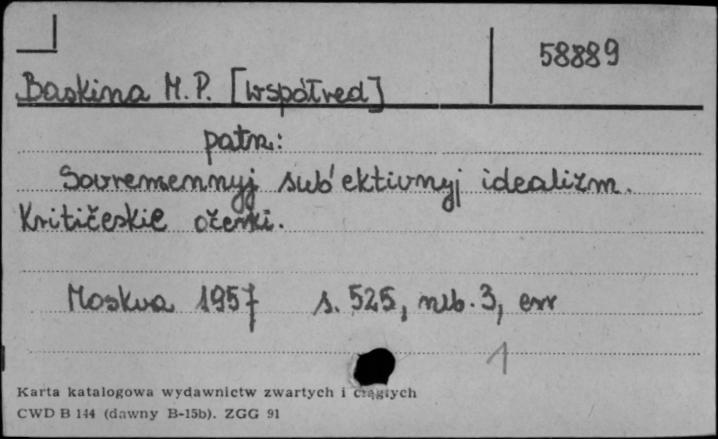 58889
Baskina M.P. [współred]
patrz:
Sovremennyj sub'ektivnyj idealizm.
Kritičeskie očerki.
Moskva 1957 s. 525, nlb. 3, err
1
Karta katalogowa wydawnictw zwartych i ciągłych
CWD B 144 (dawny B-15b). ZGG 91